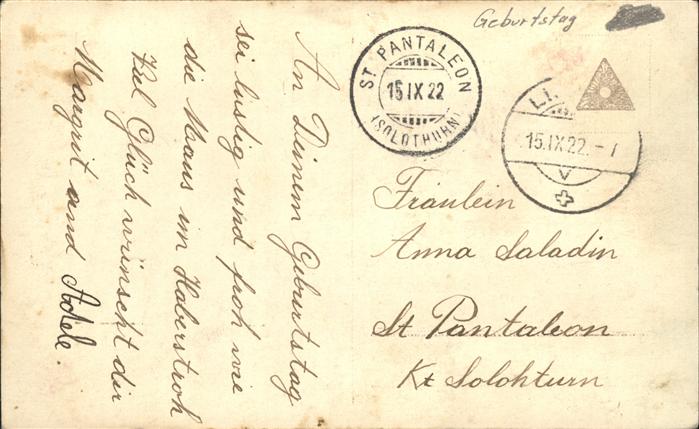 Geburtstag
ST. PANTALEON
15 IX 22
(SOLOTHURN)
15.IX.22.-7
V
An Deinem Geburtstag
sei lustig und froh wie
die Maus im Haberstroh
Viel Glück wünscht dir
Margrit und Adele.
Fräulein
Anna Saladin
St Pantaleon
Kt Solohturn